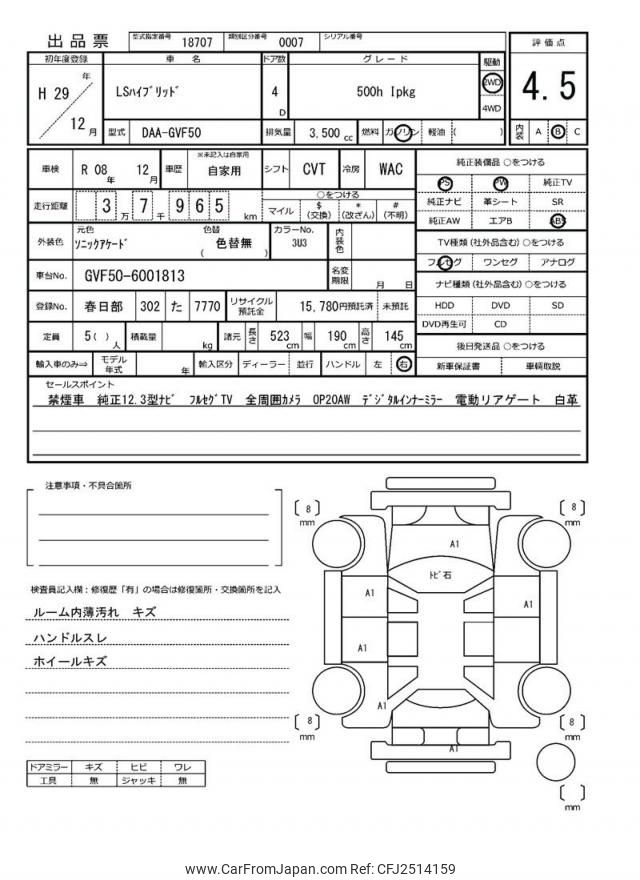 出品票
型式指定番号 18707 類別区分番号 0007 シリアル番号
初年度登録 車名 ドア数 グレード 駆動 評価点
H 29 年 12 月
LSﾊｲﾌﾞﾘｯﾄﾞ 4 D 500h Ipkg 2WD 4WD
4.5
型式 DAA-GVF50 排気量 3,500 cc 燃料 ガソリン 軽油 ( )
内装 A B C
車検 R 08 年 12 月 車歴 ※未記入は自家用 自家用 シフト CVT 冷房 WAC
純正装備品 ○をつける
PS PW 純正TV
純正ナビ 革シート SR
純正AW エアB ABS
走行距離 3 万 7 千 9 6 5 km
○をつける
マイル $ (交換) * (改ざん) # (不明)
外装色 元色 ｿﾆｯｸｱｹﾞｰﾄﾞ 色替 ( 色替無 ) カラーNo. 3U3 内装色
TV種類 (社外品含む) ○をつける
フルセグ ワンセグ アナログ
車台No. GVF50-6001813 名変期限 月 日
ナビ種類 (社外品含む) ○をつける
HDD DVD SD
DVD再生可 CD
登録No. 春日部 302 た 7770 リサイクル預託金 15,780円預託済 未預託
定員 5( ) 人 積載量 kg 諸元 長さ 523 cm 幅 190 cm 高さ 145 cm
後日発送品 ○をつける
新車保証書 車輌取説
輸入車のみ⇒ モデル年式 年 輸入区分 ディーラー 並行 ハンドル 左 右
セールスポイント
禁煙車 純正12.3型ﾅﾋﾞ ﾌﾙｾｸﾞTV 全周囲ｶﾒﾗ OP20AW ﾃﾞｼﾞﾀﾙｲﾝﾅｰﾐﾗｰ 電動リアゲート 白革
注意事項・不具合箇所
検査員記入欄：修復歴「有」の場合は修復箇所・交換箇所を記入
ルーム内薄汚れ キズ
ハンドルスレ
ホイールキズ
ドアミラー キズ ヒビ ワレ
工具 無 ジャッキ 無
[ 8 ] mm
[ 8 ] mm
A1
ﾄﾋﾞ石
A1
A1
A1
A1
A1
[ 8 ] mm
[ 8 ] mm
[ ] mm
www.CarFromJapan.com Ref: CFJ2514159